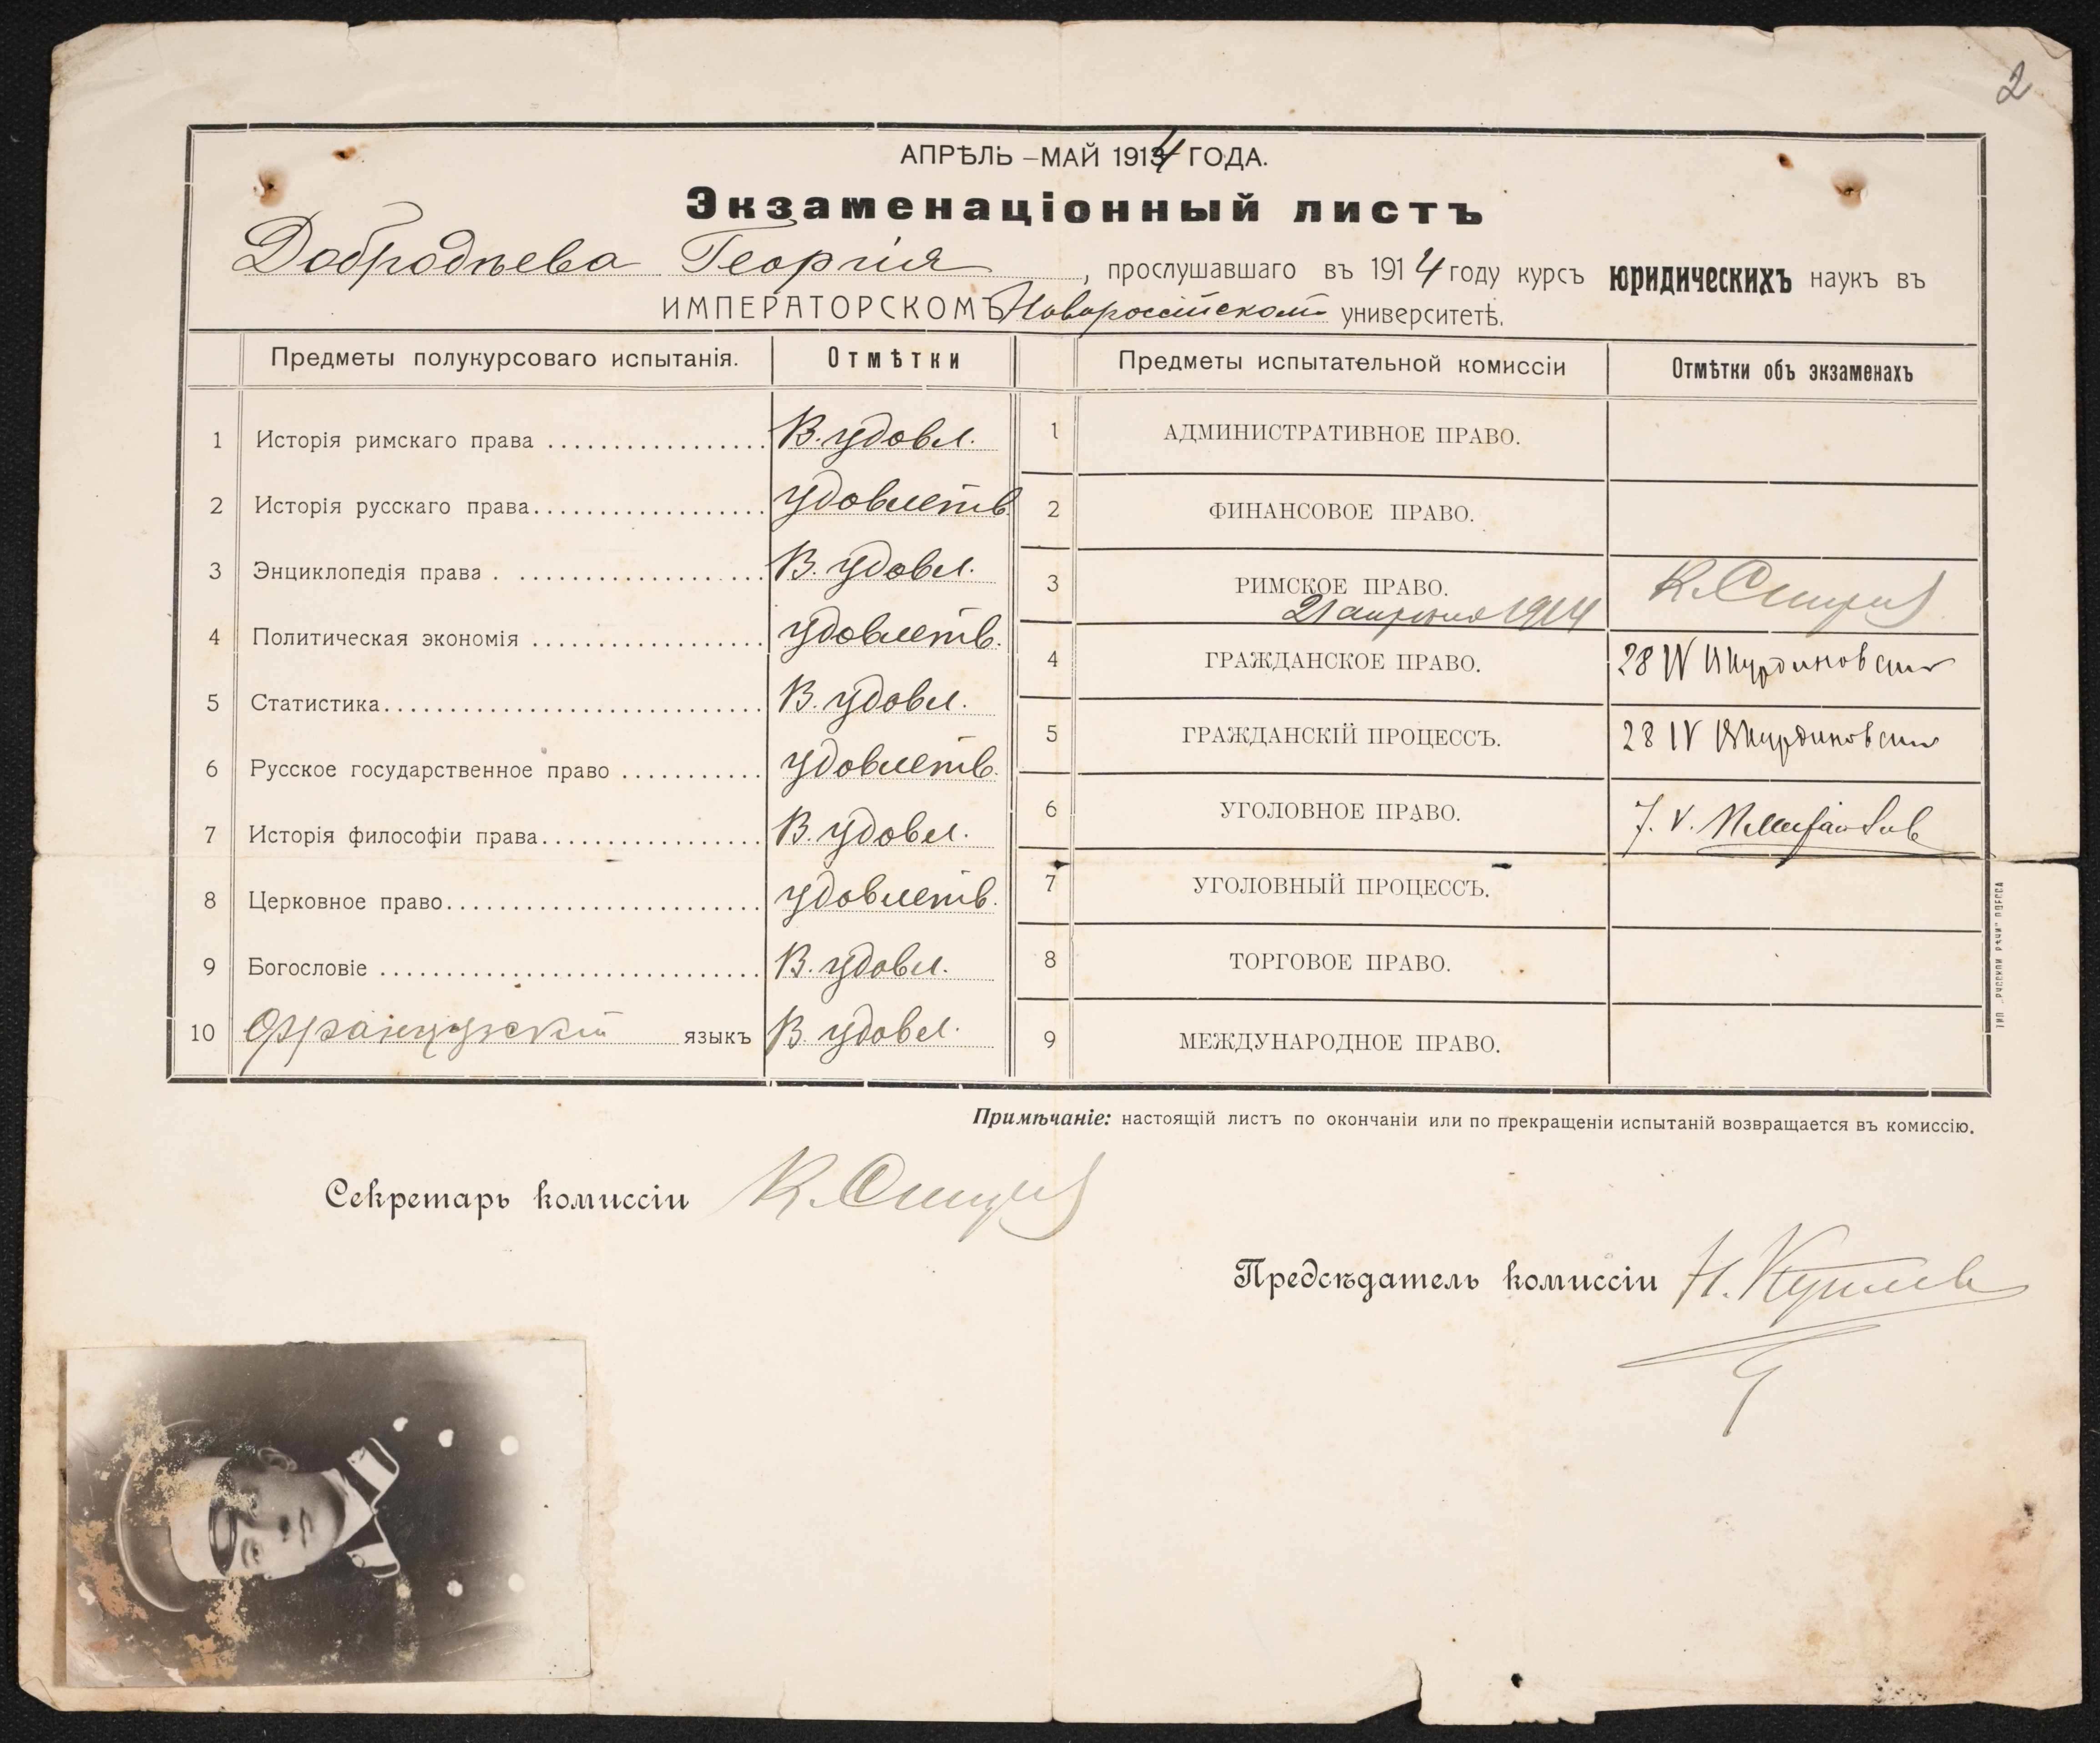 2
АПРѢЛЬ – МАЙ 1914 ГОДА.
Экзаменаціонный листъ
Добродѣева Георгія, прослушавшаго въ 1914 году курсъ юридическихъ наукъ въ
ИМПЕРАТОРСКОМЪ Новороссійскомъ университетѣ.
Предметы полукурсоваго испытанія. Отмѣтки
1 Исторія римскаго права В. удовл.
2 Исторія русскаго права удовлетв.
3 Энциклопедія права В. удовл.
4 Политическая экономія удовлетв.
5 Статистика В. удовл.
6 Русское государственное право удовлетв.
7 Исторія философіи права В. удовл.
8 Церковное право удовлетв.
9 Богословіе В. удовл.
10 Французскій языкъ В. удовл.
Предметы испытательной комиссіи Отмѣтки объ экзаменахъ
1 АДМИНИСТРАТИВНОЕ ПРАВО.
2 ФИНАНСОВОЕ ПРАВО.
3 РИМСКОЕ ПРАВО.
21 апрѣля 1914
4 ГРАЖДАНСКОЕ ПРАВО. 28 IV
5 ГРАЖДАНСКІЙ ПРОЦЕССЪ. 28 IV
6 УГОЛОВНОЕ ПРАВО. 7. V.
7 УГОЛОВНЫЙ ПРОЦЕССЪ.
8 ТОРГОВОЕ ПРАВО.
9 МЕЖДУНАРОДНОЕ ПРАВО.
ТИП. „РУССКОЙ РѢЧИ" ОДЕССА
Примѣчаніе: настоящій листъ по окончаніи или по прекращеніи испытаній возвращается въ комиссію.
Секретарь комиссіи
Предсѣдатель комиссіи